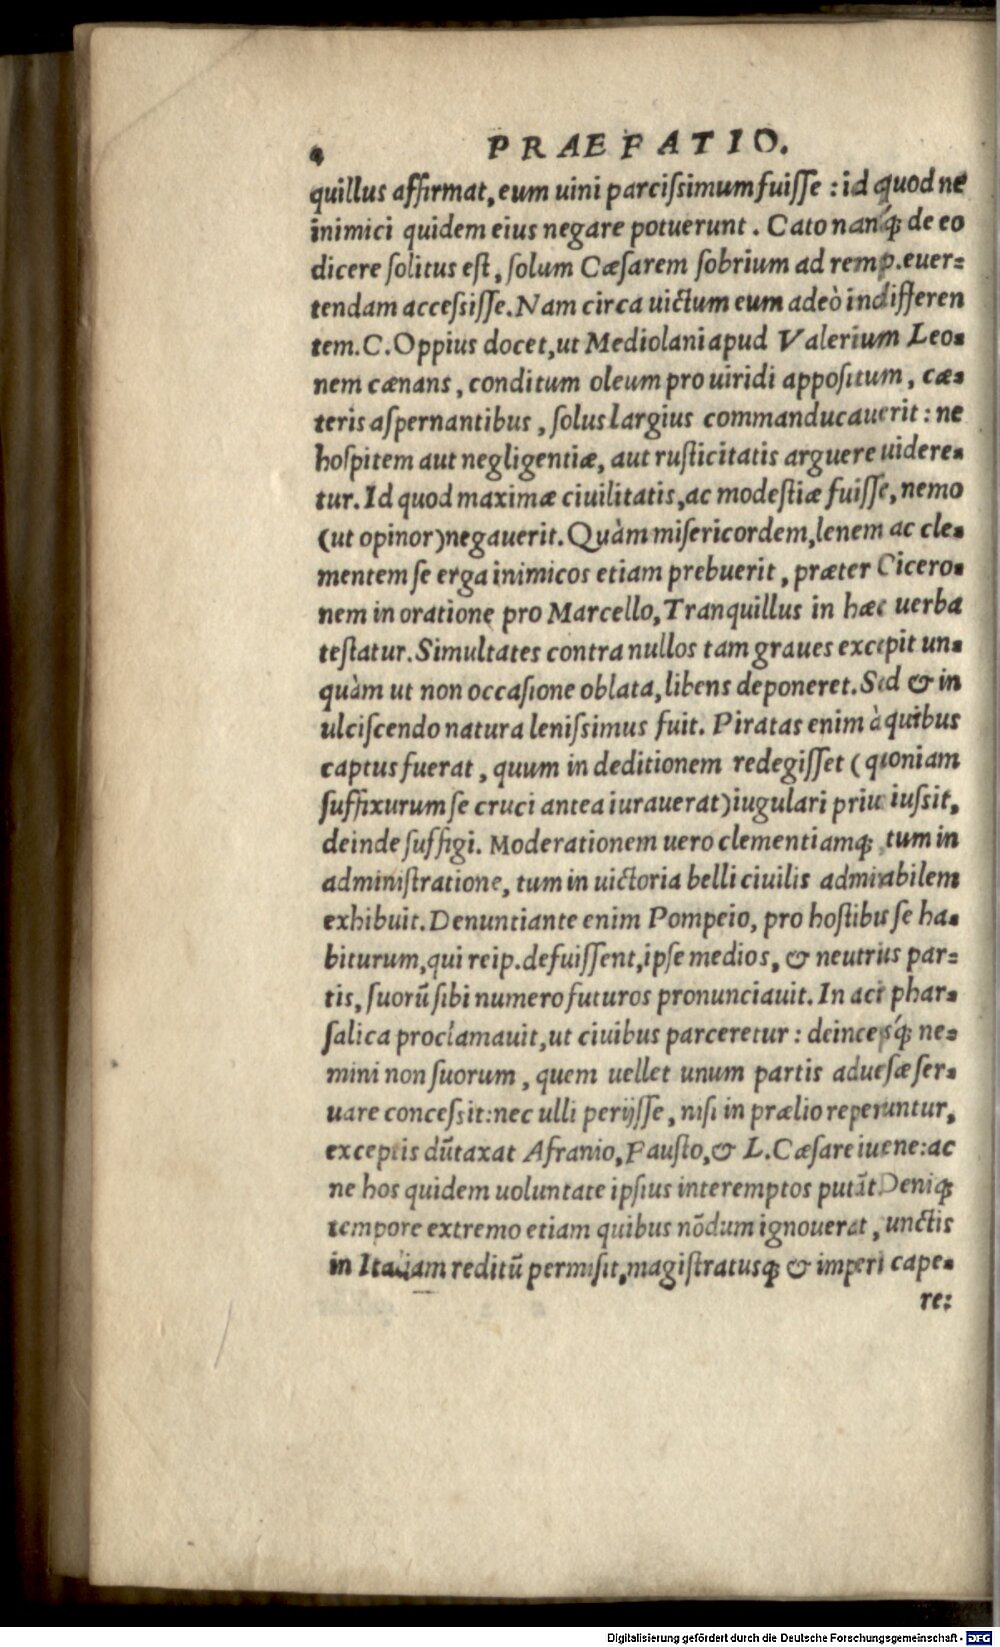 4 PRAEFATIO.
quillus affirmat, eum uini parcißimum fuiſſe : id quod ne
inimici quidem eius negare potuerunt. Cato nanq́; de eo
dicere ſolitus eſt, ſolum Cæſarem ſobrium ad remp. euer=
tendam acceſsiſſe. Nam circa uictum eum adeò indifferen
tem. C. Oppius docet, ut Mediolani apud Valerium Leo=
nem cænans, conditum oleum pro uiridi appoſitum, cæ=
teris aſpernantibus, ſolus largius commanducauerit : ne
hoſpitem aut negligentiæ, aut ruſticitatis arguere uidere=
tur. Id quod maximæ ciuilitatis, ac modeſtiæ fuiſſe, nemo
(ut opinor) negauerit. Quàm miſericordem, lenem ac cle=
mentem ſe erga inimicos etiam prebuerit, præter Cicero=
nem in oratione pro Marcello, Tranquillus in hæc uerba
teſtatur. Simultates contra nullos tam graues excepit un=
quàm ut non occaſione oblata, libens deponeret. Sed & in
ulciſcendo natura leniſsimus fuit. Piratas enim à quibus
captus fuerat, quum in deditionem redegiſſet (quoniam
ſuffixurum ſe cruci antea iurauerat) iugulari prius iuſsit,
deinde ſuffigi. Moderationem uero clementiamq; tum in
adminiſtratione, tum in uictoria belli ciuilis admirabilem
exhibuit. Denuntiante enim Pompeio, pro hoſtibus ſe ha=
biturum, qui reip. defuiſſent, ipſe medios, & neutrius par=
tis, ſuorũ ſibi numero futuros pronunciauit. In acie phar=
ſalica proclamauit, ut ciuibus parceretur : deincepsq́; ne=
mini non ſuorum, quem uellet unum partis adueſæ ſer=
uare conceſsit: nec ulli perijſſe, niſi in prælio reperiuntur,
exceptis dũtaxat Afranio, Fauſto, & L. Cæſare iuuene: ac
ne hos quidem uoluntate ipſius interemptos putãt. Deniq;
tempore extremo etiam quibus nõdum ignouerat, cunctis
in Italiam reditũ permiſit, magiſtratusq; & imperia cape=
re:
Digitalisierung gefördert durch die Deutsche Forschungsgemeinschaft - DFG